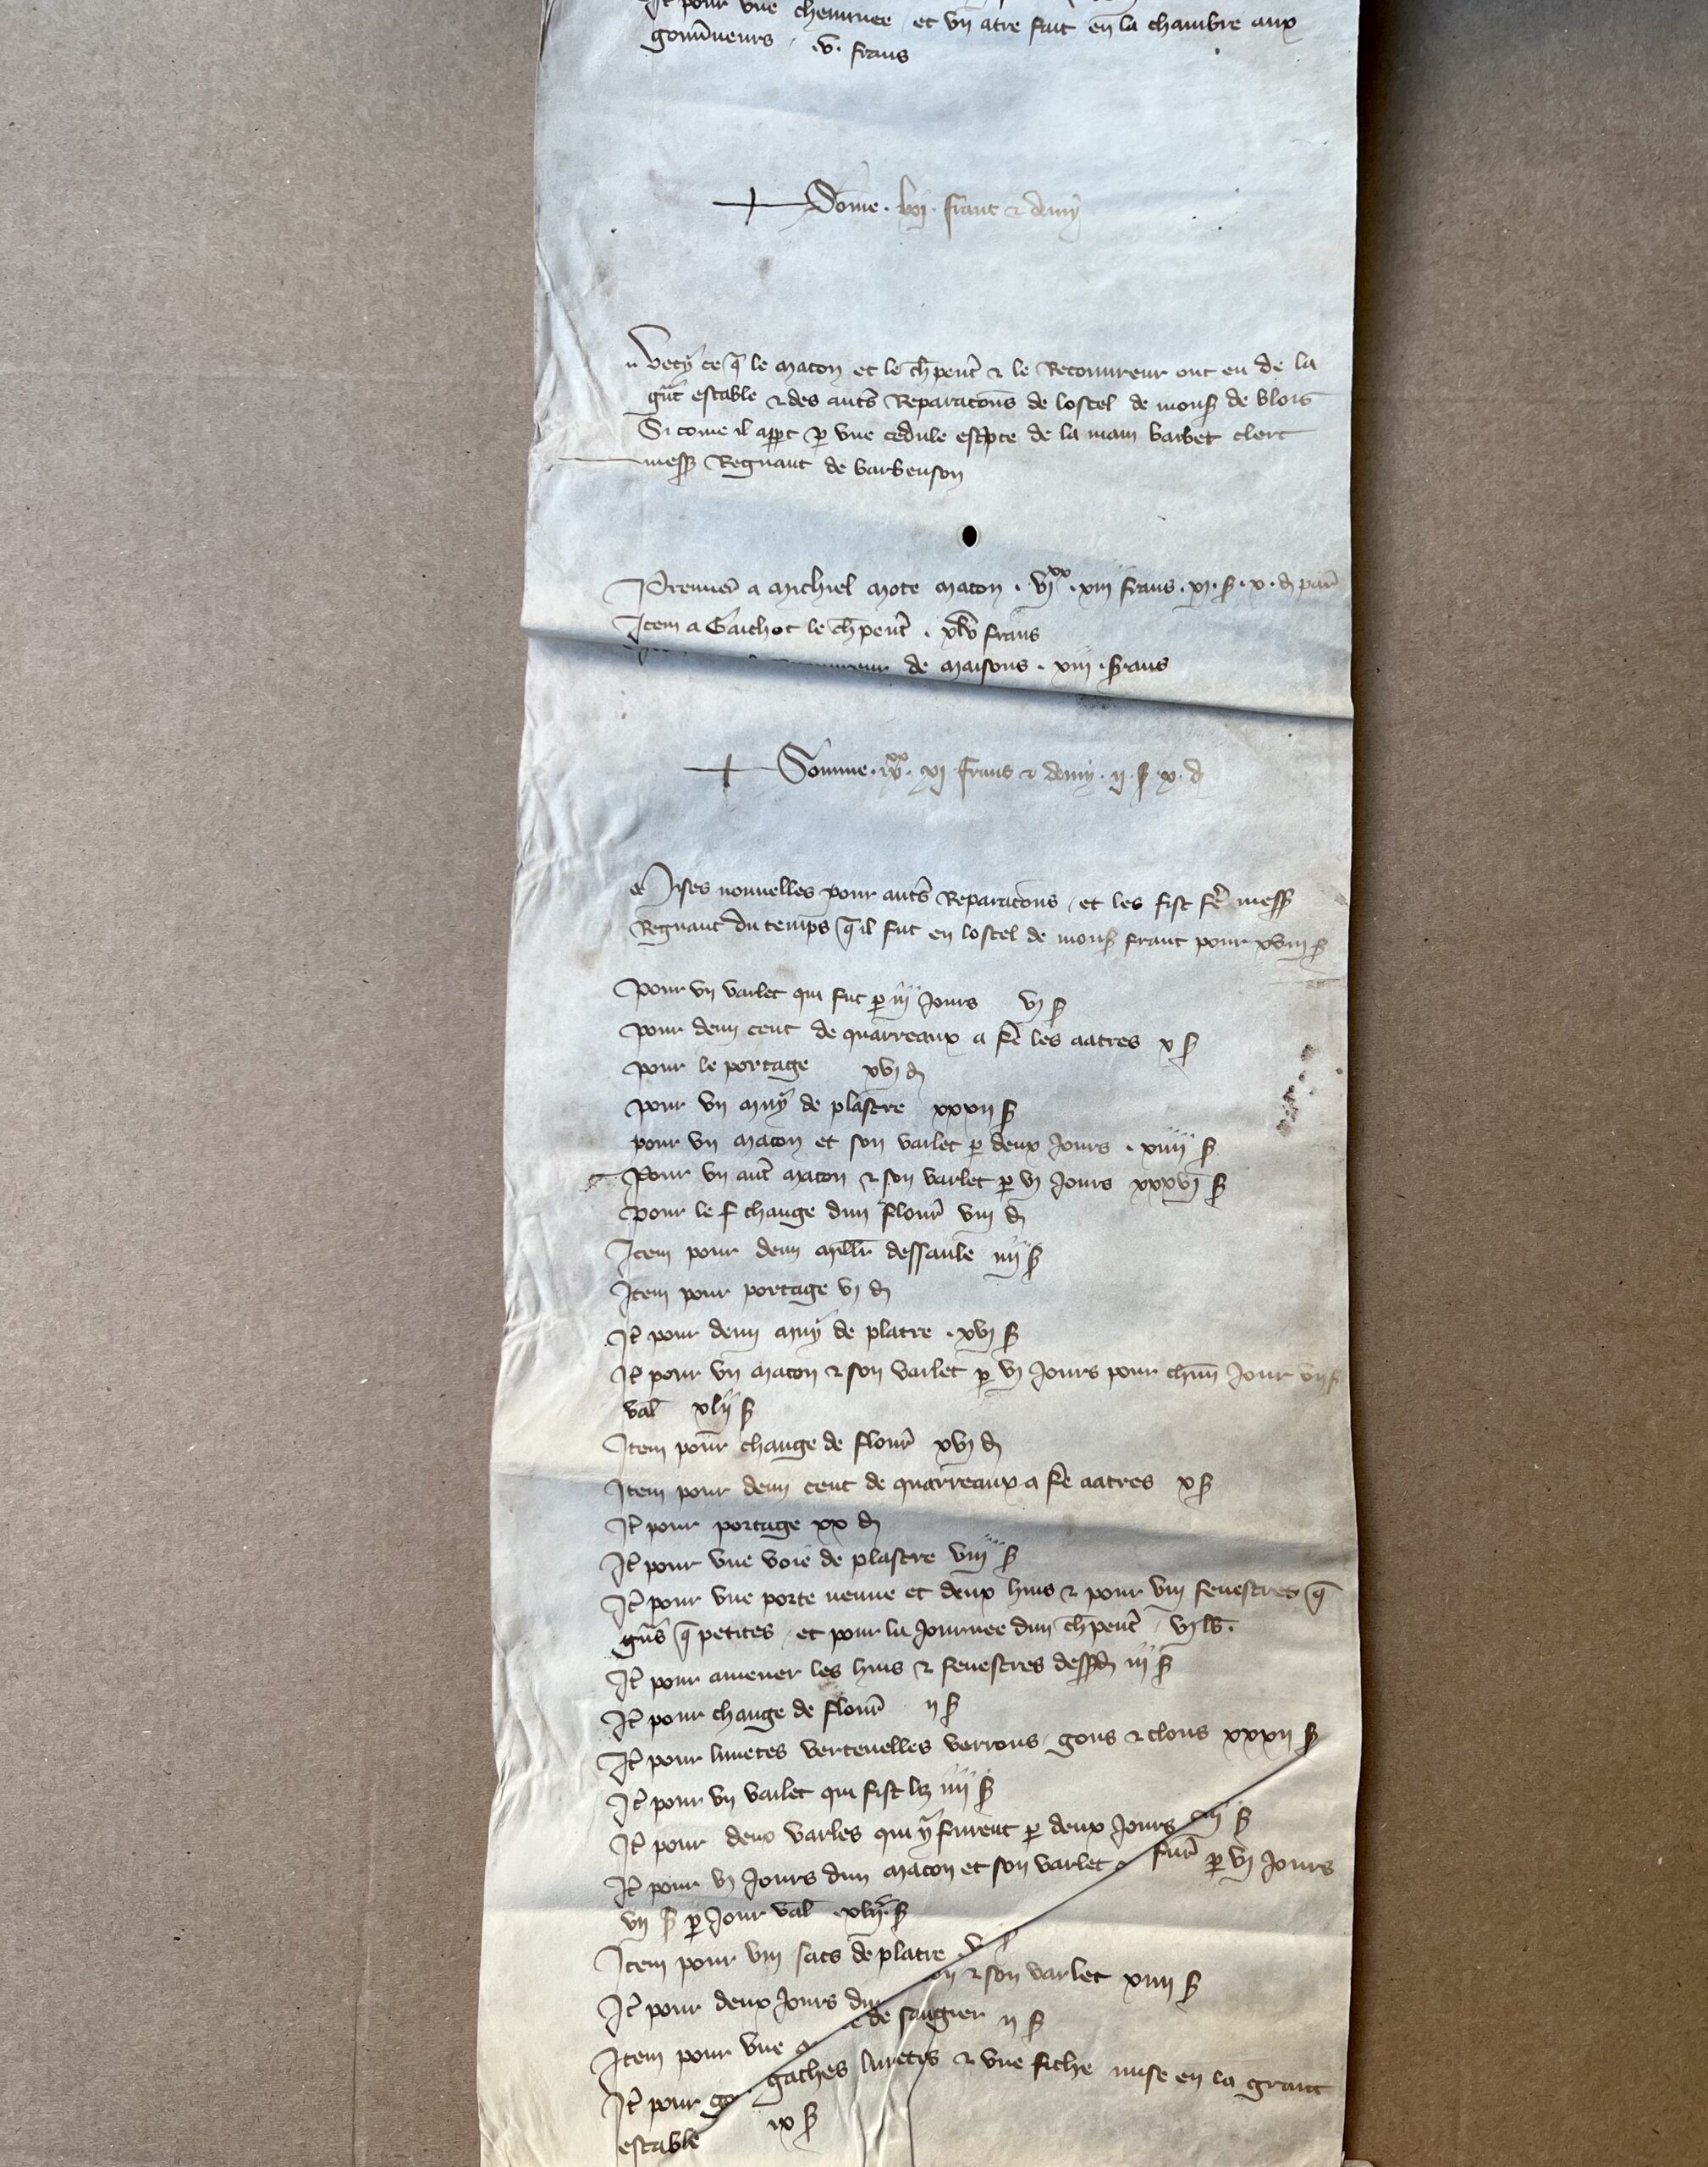 It pour vne cheminee et vn atre fait en la chambre aux
gouvneurs . v . frans
Some . lvij . franc & demy
Vecy ce q le macon et le chpent & le Recouvreur ont eu de la
gnt estable & des auts Reparacons de lostel de mons de blois
Si come il appt p vne cedule escpte de la main barbet clerc
mess Regnaut de barbenson
Premier a michiel mote macon . vijxx . xiii frans . xj . s . x . d par
Item a Gaichot le chpent . xlv frans
de maisons . xiii . frans
Somme . ixxx . xj frans & demy . ij . s . x . d
Mises nouuelles pour auts Reparacons et les fist fe mess
Regnaut du temps qil fut en lostel de mons franc pour xviii s
Pour vn varlet qui fut p iij Jours vj s
pour demi cent de quarreaux a fe les aatres x s
pour le portage xvj d
pour vn muy de plastre xxxii s
pour vn macon et son varlet p deux Jours . xiiii s
Pour vn aut macon & son varlet p vj Jours xxxvj s
pour le f change dun flour viii d
Item pour demi mill dessaule iiij s
Item pour portage vj d
It pour demi muy de platre . xvj s
It pour vn macon & son varlet p vj Jours pour chun Jour vij s
val xlij s
Item pour change de flour xvj d
Item pour demi cent de quarreaux a fe aatres x s
It pour portage xx d
It pour vne voie de plastre viii s
It pour vne porte neuue et deux huis & pour viii fenestres q
gns q petites et pour la Journee dun chpent vj lb .
It pour amener les huis & fenestres dessd iij s
It pour change de flour ij s
It pour luuetes vertenelles verrous gons & clous xxxii s
It pour vn varlet qui fist lez iiij s
It pour deux varles qui y furent p deux Jours s
It pour vj Jours dun macon et son varlet fur p vj Jours
vij s p Jour val xlij s
Item pour viii sacs de platre . v s
It pour deux Jours dun & son varlet xiiii s
Item pour vne de saugier ij s
It pour gaches luuetes & vne fiche mise en la grant
estable ix s